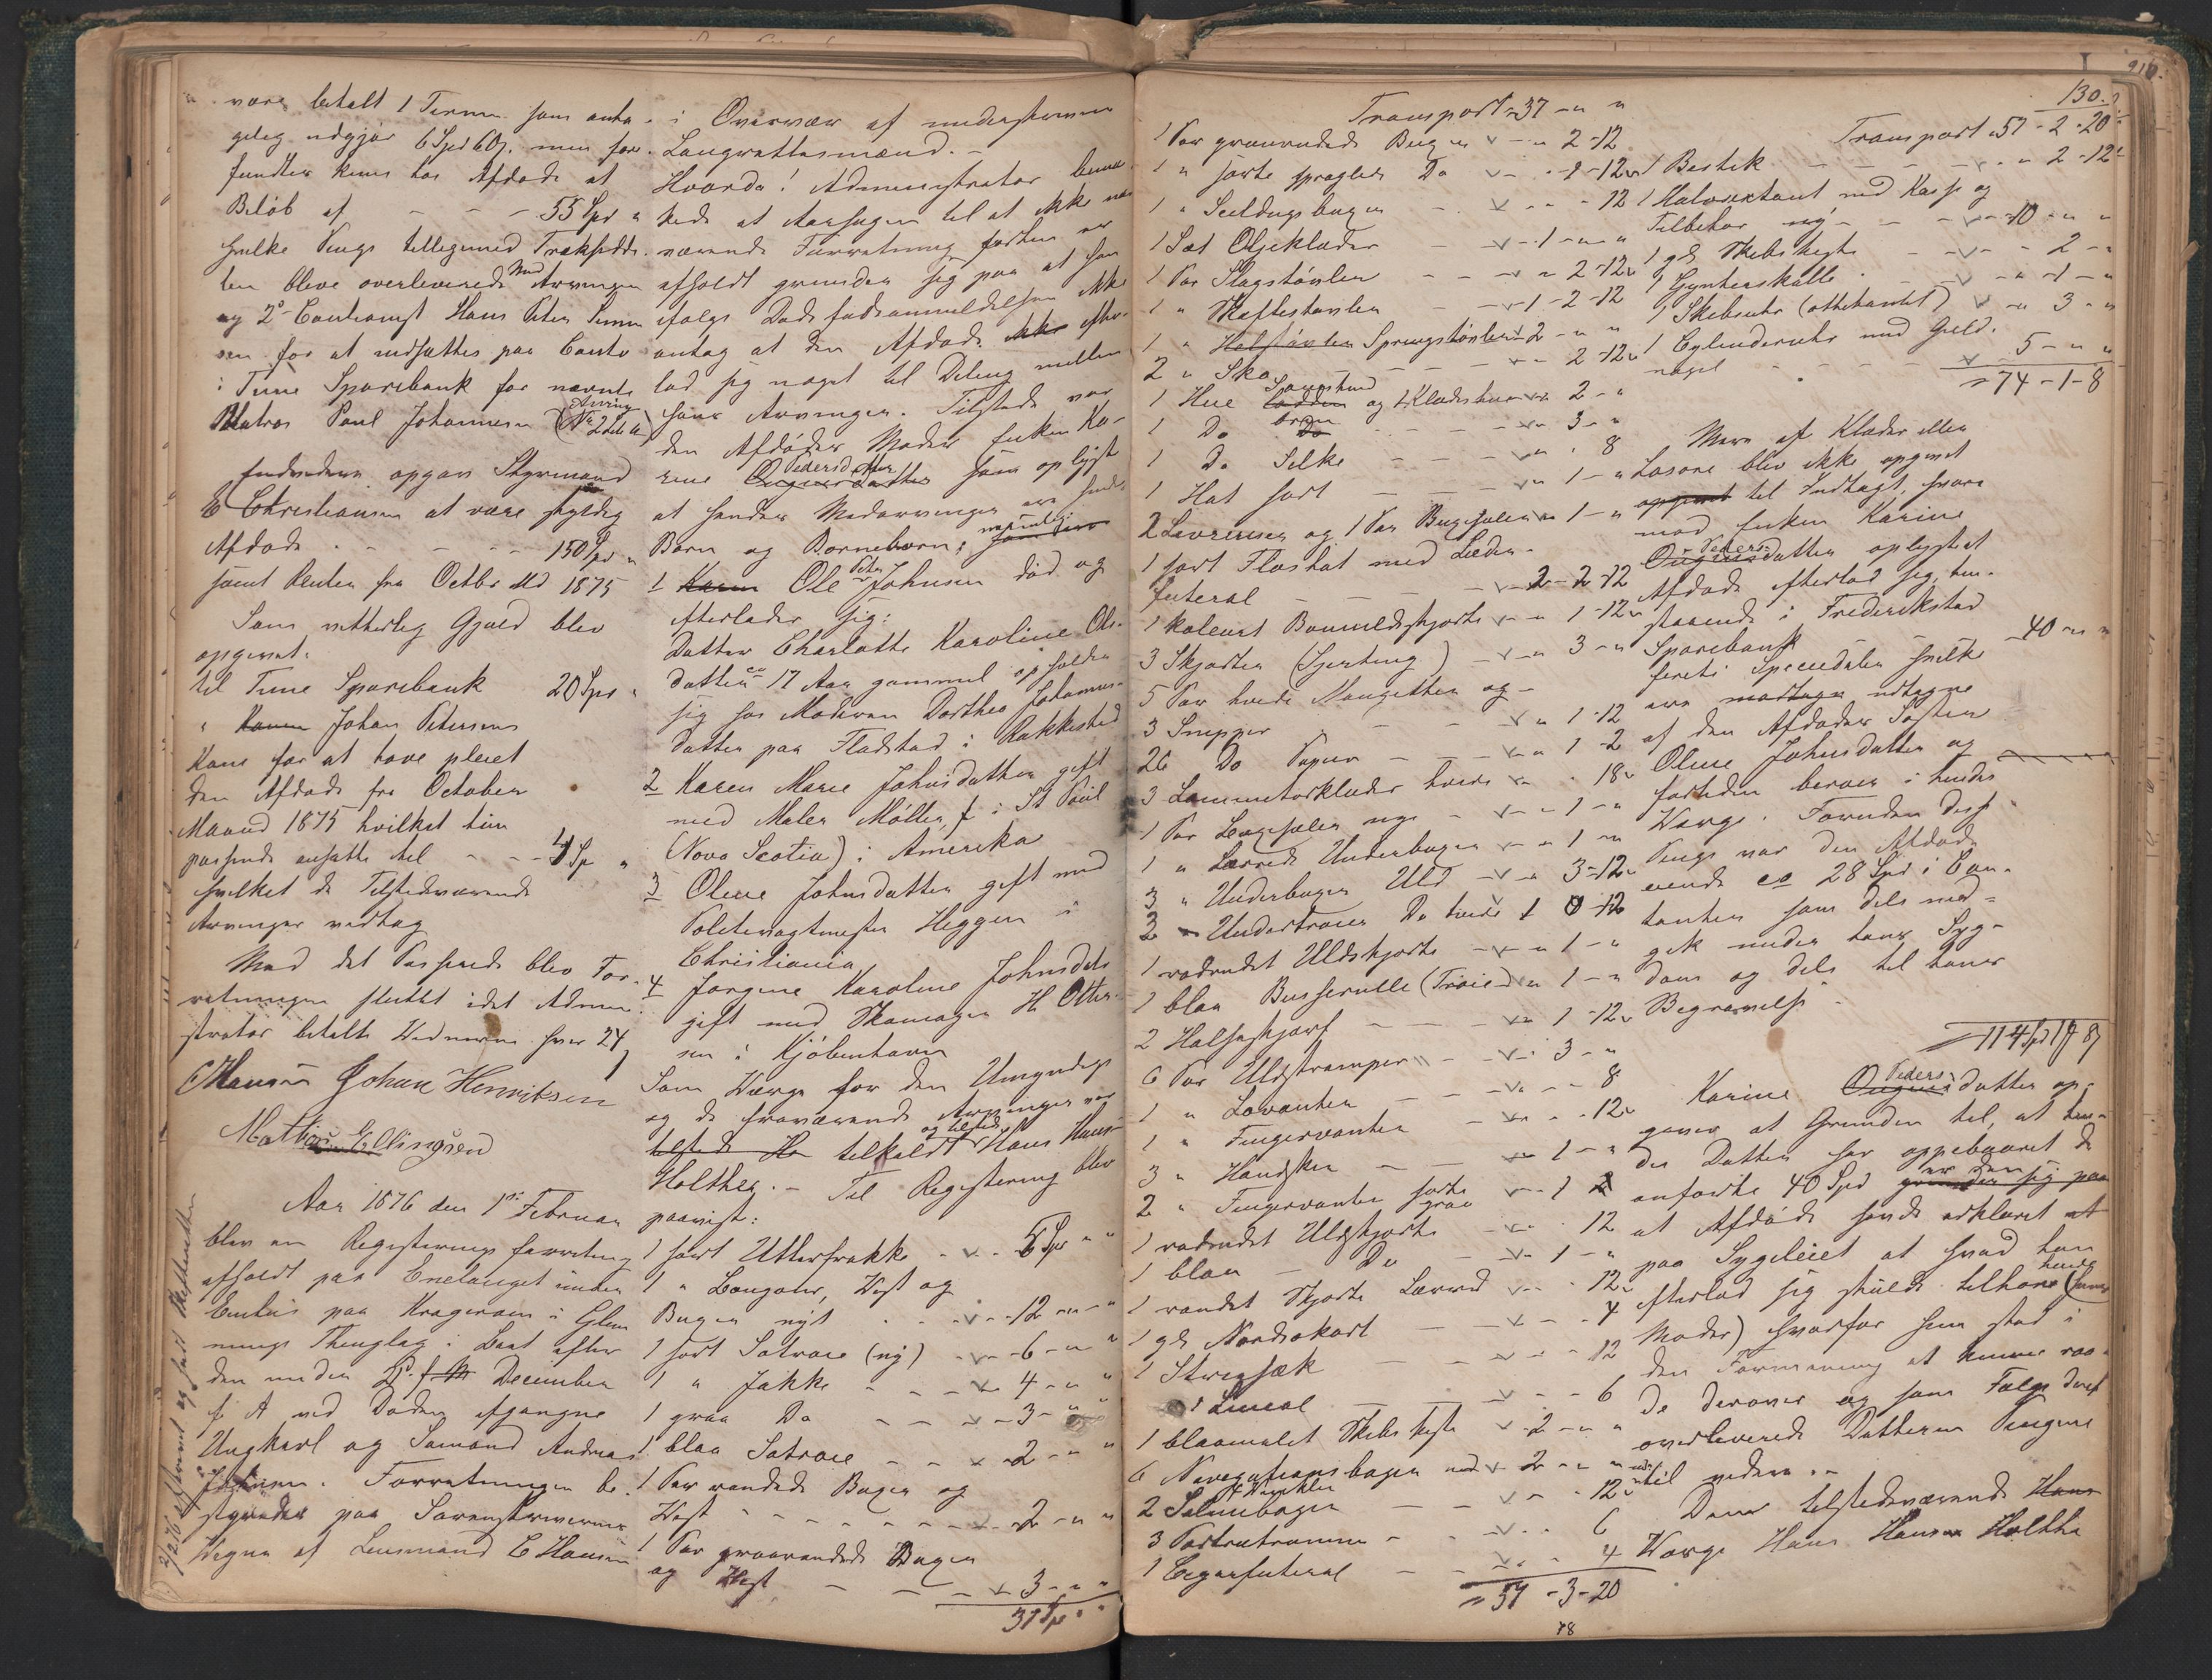 være betalt 1 Termin som anta-
gelig udgjør 6 Spd 60 s. men fore-
fundtes kuns hos Afdøde et
Beløb af - - - 55 Spd "
hvilke Penge tilligemed Trækseddе-
len bleve overleverede
og Hans Peter
for at indsættes paa Conto
i Tune Sparebank for nævnte
Matros Paul Johannesen (Arving No 2
Endvidere opgav Styrmand
E Christiansen at være skyldig
Afdøde - - - 150 Spd "
samt Renter fra Octbr Md 1875
Som vitterlig Gjæld blev
opgivet:
til Tune Sparebank 20 Spd "
" Johan Petersens
Kone for at have pleiet
den Afdøde fra October
Maaned 1875 hvilket hun
passende ansatte til - - - 4 Sp "
hvilket de Tilstedeværende
Arvinger vedtog
Med det Passerede blev For-
retningen sluttet idet Admini-
strator betalte Vidnerne hver 24 s
C Hansen Johan Henriksen
Mathias Ellingsen
Aar 1876 den 1ste Februar
blev en Registrerings forretning
afholdt paa Enelauget under
paa Kragerøen i Glem-
minge Thinglag i Boet efter
den under December
f. A ved Døden afgangne
Ungkarl og Sømand Andreas
Johnsen. Forretningen be-
styredes paa Sorenskriverens
Vegne af Lensmand C Hansen
i Overvær af undertegnede
Laugrettesmænd. -
Hvorda! Administrator bemær-
kede at Aarsagen til at ikke nær-
værende Forretning førten er
afholdt grunder sig paa at han
ifølge Dødsfaldsanmeldelsen ikke
antog at den Afdøde efter-
lod sig noget til Deling mellem
hans Arvinger. Tilstede var
den Afdødes Moder Enken Ka-
rine Pedersdatter som oplyste
at hendes Medarvinger ere hendes
Børn og Børnebørn, nemlig:
1 Ole Peter Johnsen død og
efterlader sig:
Datter Charlotte Karoline Ols-
datter ca 17 Aar gammel opholder
sig hos Moderen Dorthea Johannes-
datter paa Fladstad i Rakkestad
2 Karen Marie Johnsdatter gift
med Maler Møller, f i St Paul
(Nova Scotia) i Amerika
3 Oline Johnsdatter gift med
Politivagtmester Heggen i
Christiania
4 Jørgine Karoline Johnsdtr
gift med Skomager H Otter-
sen i Kjøbenhavn
Som Værge for den Umyndige
og de fraværende Arvinger var
tilkaldt og tilstede Hans Hansen
Holthe. - Til Registrering blev
paavist:
1 sort Utterfrakke - v - 5 Spd " "
1 " Bongour, Vest og
Buxer nyt - v - 12 - " - "
1 sort Søtrøie (ny) - v - 6 - " - "
1 " Jakke - - - v - 4 - " "
1 graa Do - - v - 3 - " "
1 blaa Søtrøie - - v - 2 - " "
1 Par randede Buxer og
Vest - - - - - v - 2 - " "
1 Par graarandede Buxer
og Vest - - - v 3 - " "
37 Sp " "
Transport = 37 - " "
1 Par graarudede Buxer v - " 2 - 12
1 " sorte spraglet Do v - " 2 - 12
1 " Seildugsbuxer - v - - 12
1 Sæt Oljeklæder - v - 1 - " "
1 Par Slagstøvler - - v " 2 - 12
1 " Skaftestøvler - v - 1 - 2 - 12
1 " Springstøvler v 2 - " "
2 " Sko - - v " 2 - 12
1 Hue og 1 Klædeshue v " 2 - "
1 Do - - - v " 3 - "
1 Do Silke - - - v " " 8
1 Hat sort - - v " 1 - "
2 og 1 Par Buxeseler v " 1 - "
1 sort Floshat med Læder-
futeral - - - v 2 - 2 - 12
1 kulørt Bomuldsskjorte v - " 1 - 12
3 Skjorter (Sjerting) - v - " 3 - "
5 Par hvide Mangetter og -
3 Snipper - - v " 1 - 12
26 Do Papir - - v " 1 - 2
3 Lommetørklæder hvide v - " 18
1 Par Buxeseler nye - v - " 1 - "
1 " Lærreds Underbuxer v - " 1 - "
3 " Underbuxer Uld - v - " 3 - 12
2 " Undertrøier Do hvide
1 rødrudet Uldskjorte - v - " 1 - "
1 blaa Busserulle (Trøie) v " 1 - "
2 Halsskjærf - - v " 1 - 12
6 Par Uldstrømper " - v - " 3 - "
1 " Lovanter - - v " - 8
1 " Fingervanter - v " - 12
3 " Handsker - - v " 1 - "
2 " Fingervanter sorte graa v - " 1
1 rødrudet Uldskjorte - v - " 12
1 blaa - Do - v " 1 - "
1 randet Skjorte Lærred v - " 12
1 gl Nordsøkart - - v - " 4
1 Striesæk - - v - " 12
1 Lineal - - v - " 6
1 blaamalet Skibskiste v - 2 - " "
6 Navigationsbøger v - 2 - " "
2 Salmebøger - - v - " 12
3 Portrætrammer - - v - " 6
1 Cigarfuteral - - v - " 4
= 57 - 3 - 20
78
130.
Transport = 57 - 2 - 20
1 Bestik - - - v - " 2 - 12
1 Halvsextant med Kasse og
Tilbehør ny - - v - 10 - " "
1 gl Skibskiste - v - " 2 - "
- v - " 1 - "
1 Skibsuhr (ottekantet) v - " 3 - "
1 Cylinderuhr med Guld-
nøgel - - v 5 - " "
= 74 - 1 - 8
Mere af Klæder eller
Løsøre blev ikke opgivet
til Indtægt, hvori-
mod Enken Karine
Pedersdatter oplyste at
Afdøde efterlod sig, hen-
staaende i Frederikstad
Sparebank - 40 " "
førti Speciedaler hvilke
ere udtagne
af den Afdødes Søster
Oline Johnsdatter og
fortiden beroer i hendes
Værge. Foruden disse
Penge var den Afdøde
eiende ca 28 Spd i Con-
tanter som dels med-
gik under hans Syg-
dom og dels til hans
Begravelse -
= 114 Spd 1 ʄ 8 s
Karine Pedersdatter op-
giver at Grunden til, at hen-
des Datter har oppebaaret de
anførte 40 Spd er den
at Afdøde havde erklæret at
paa Sygeleiet at hvad han
efterlod sig skulde tilhøre hende (hans
Moder) hvorfor hun stod i
den Formening at kunne raa-
de derover og som Følge deraf
overleverede Datteren Pengene
til
Den tilstedeværende
Værge Hans Hansen Holthe